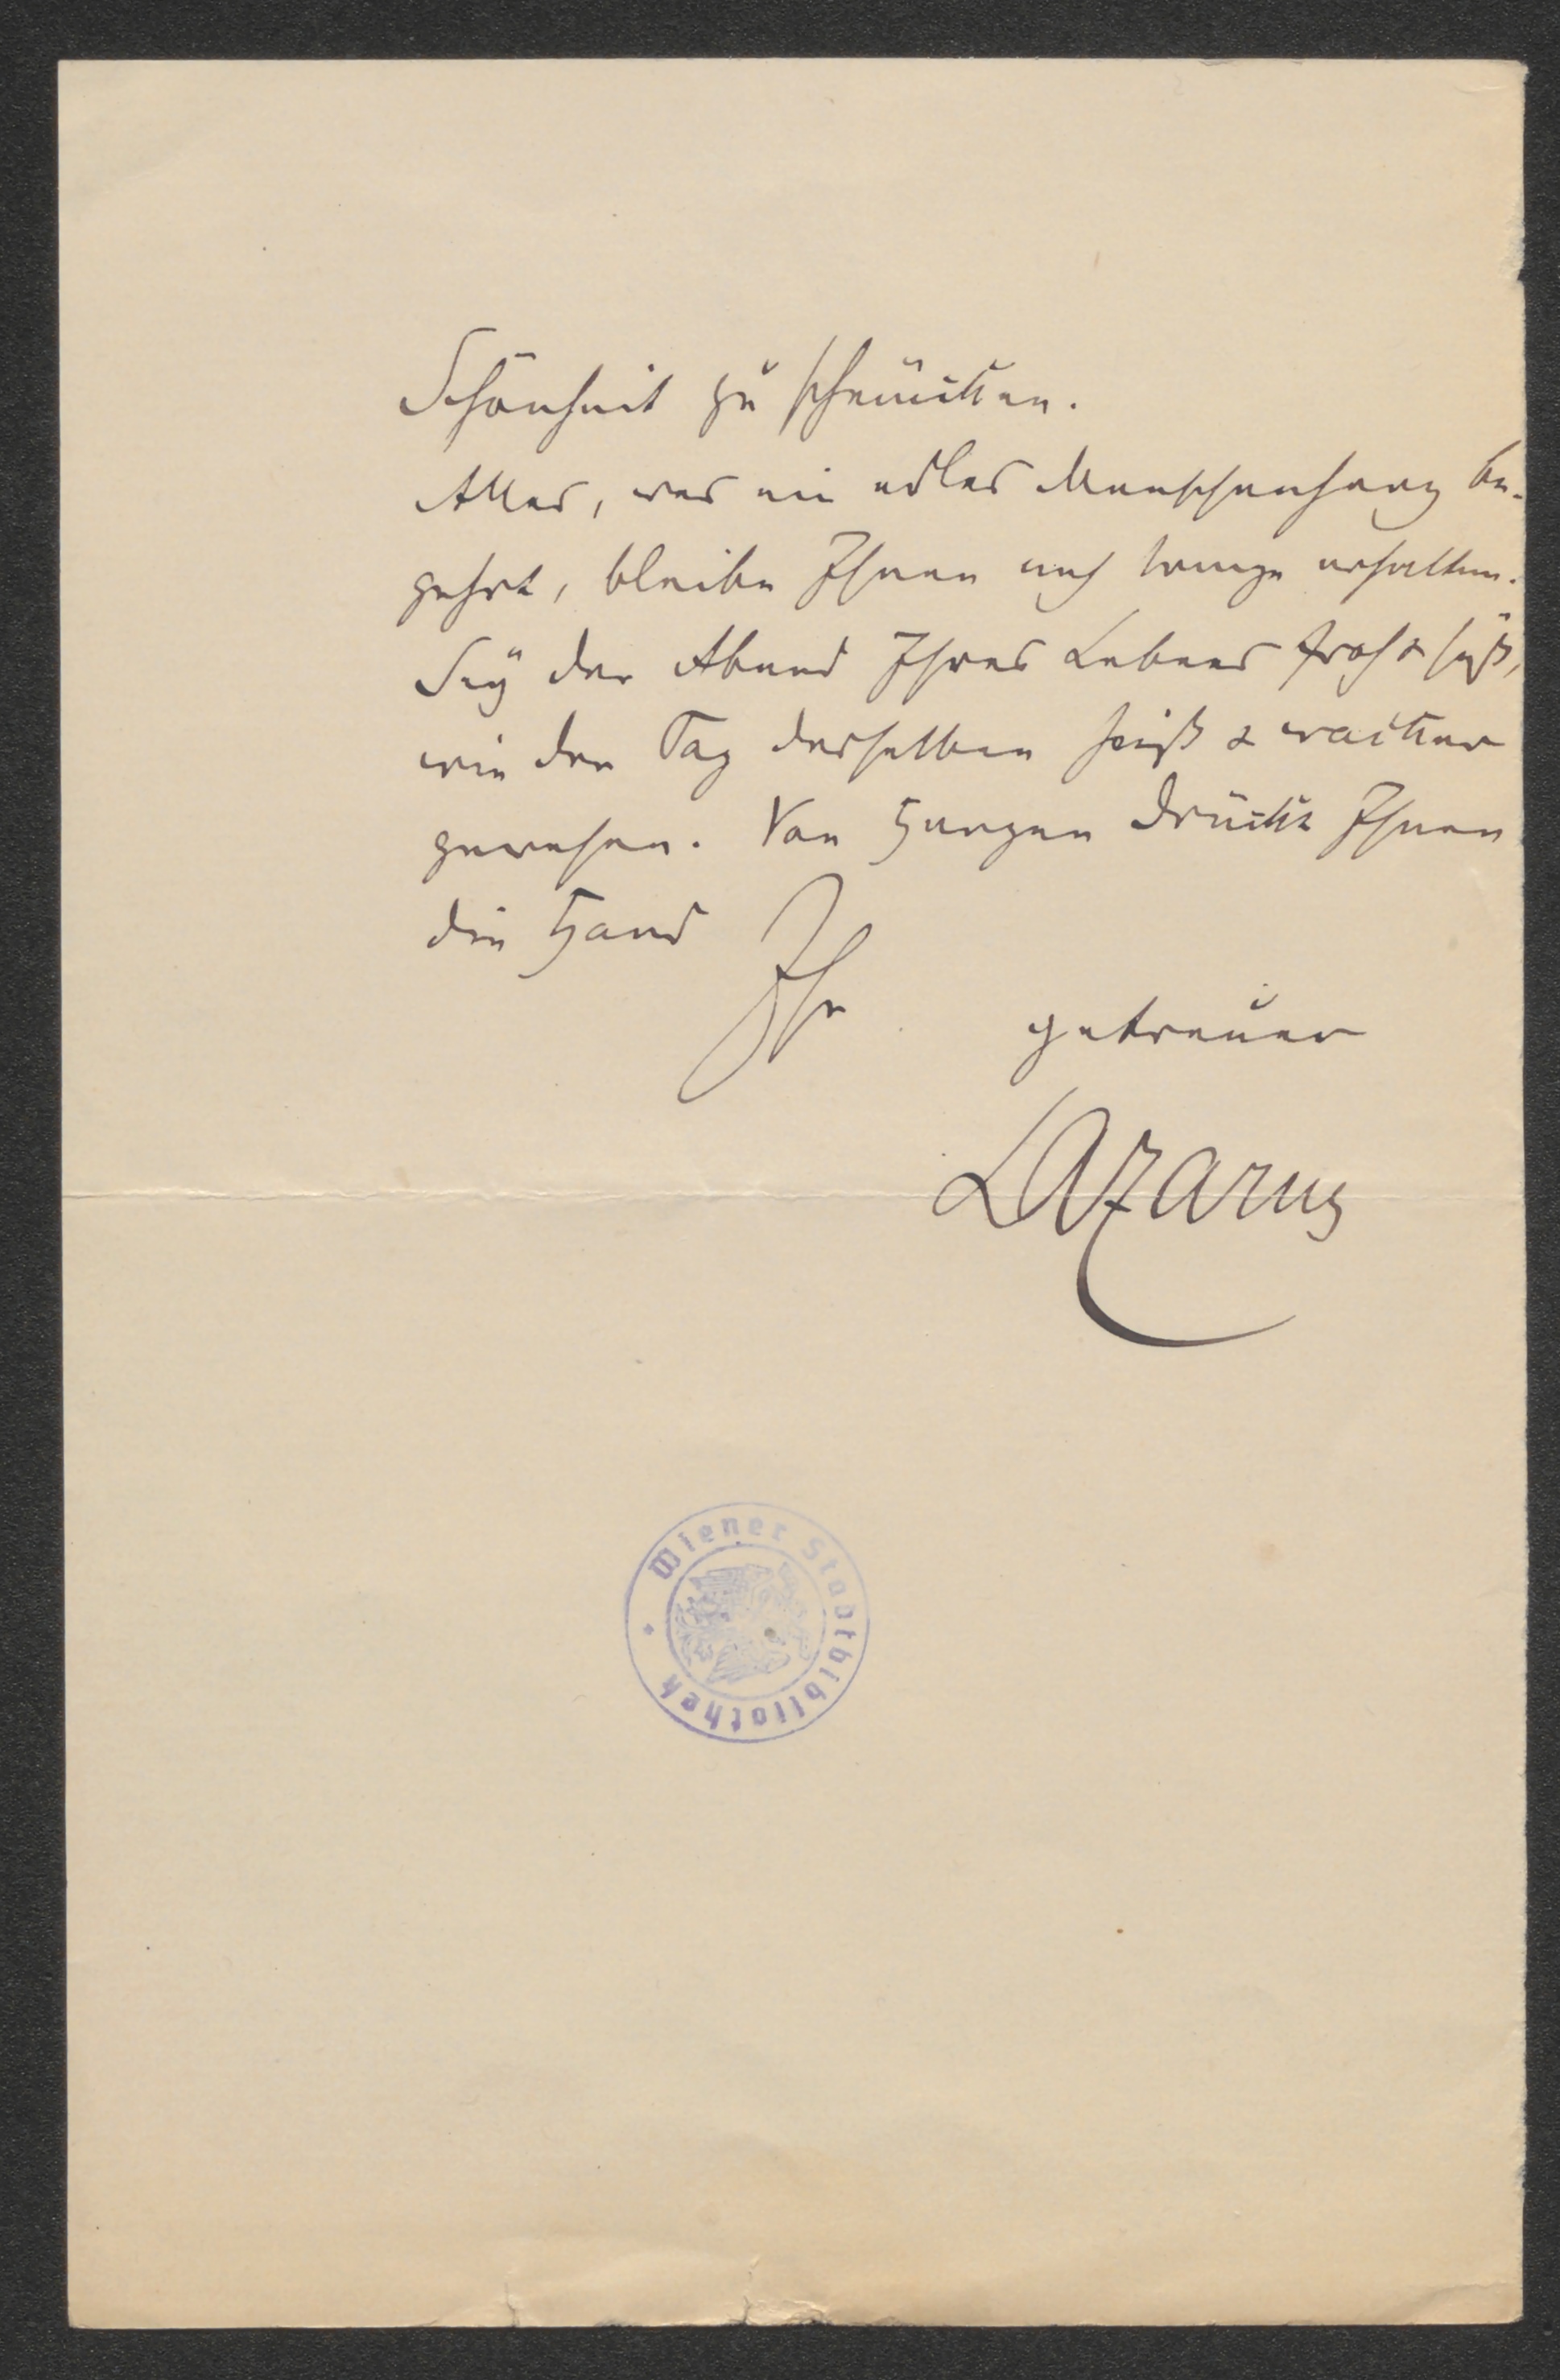 Schönheit zu schmücken.
Alles, was ein edles Menschenherz be-
gehrt, bleibe Ihnen noch lange erhalten.
Sey der Abend Ihres Lebens froh & süß,
wie der Tag desselben heiß & wacker
gewesen. Von Herzen drückt Ihnen
die Hand
Ihr
getreuer
Lazarus
Wiener Stadtbibliothek